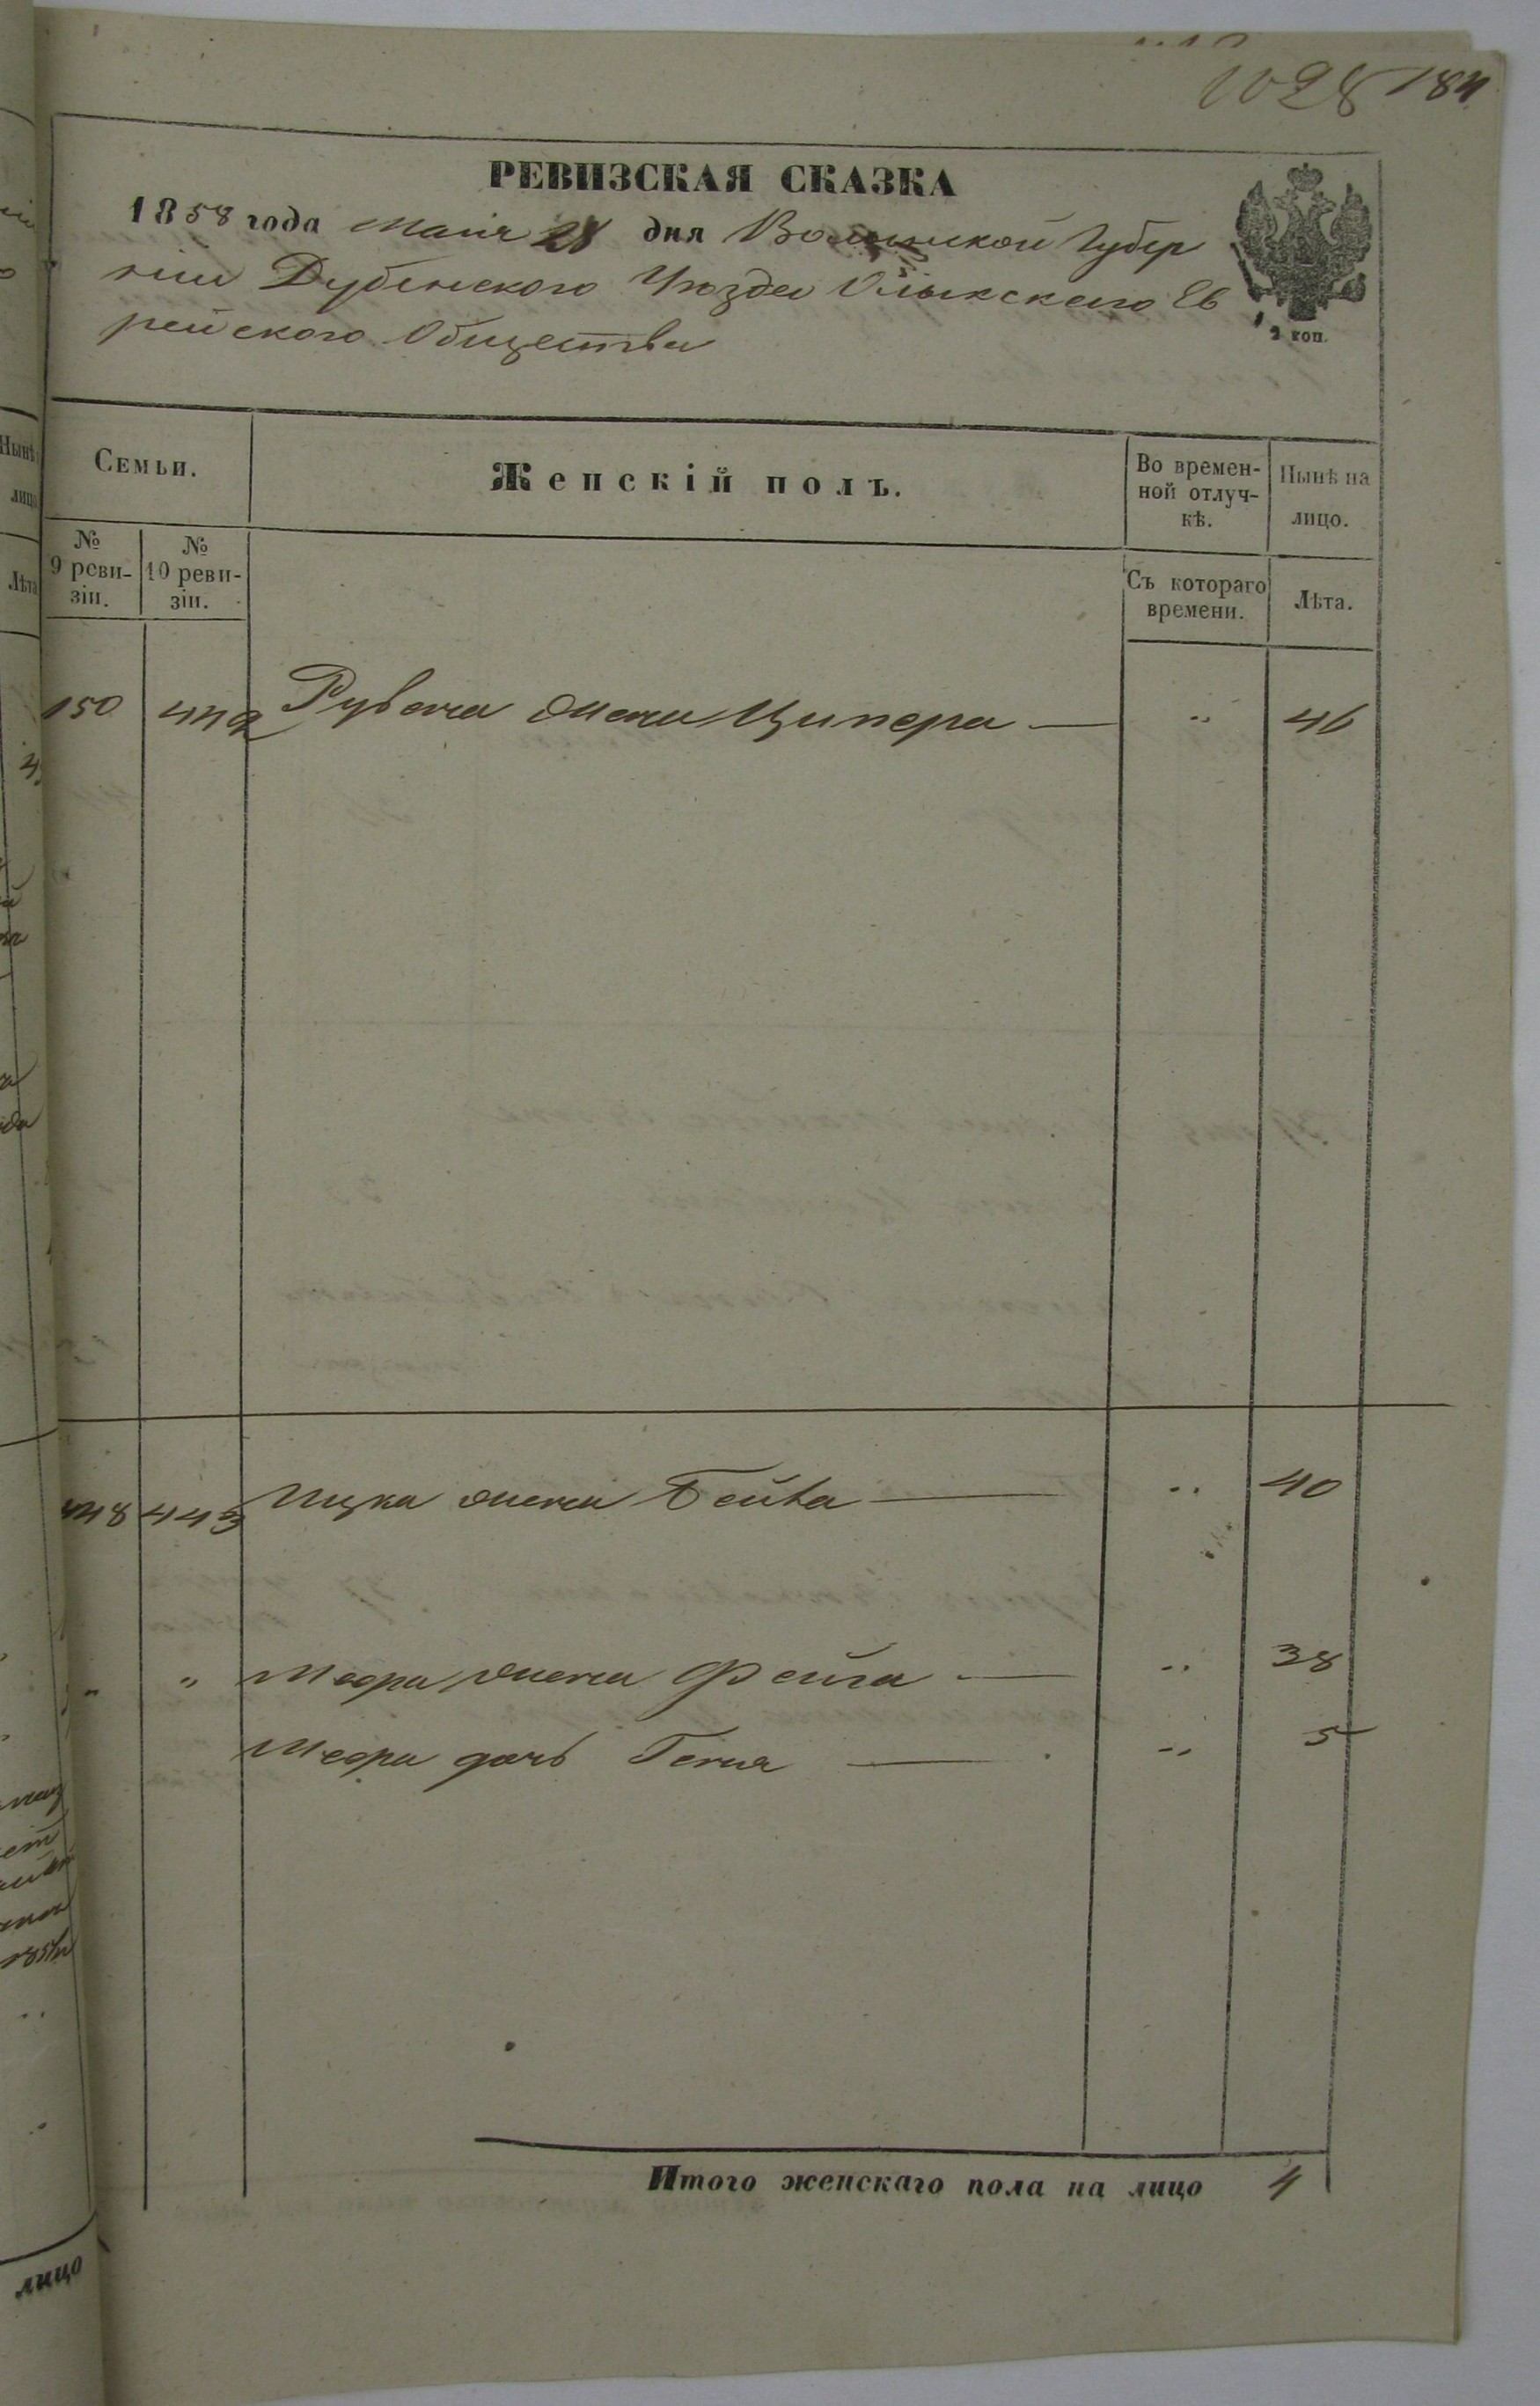 1028 184
РЕВИЗСКАЯ СКАЗКА
1858 года Маия 28 дня Волынской Губер
ніи Дубенского Уезда Олыкского Ев
рейского Общества
2 коп.
Семьи.
Женскій полъ.
Во времен-
ной отлуч-
кѣ.
Нынѣ на
лицо.
№
9 реви-
зіи.
№
10 реви-
зіи.
Съ котораго
времени.
Лѣта.
150 442 Рувена жена Ципера — „ 46
448 443 Ицка жена Бейла — „ 40
„ „ Меера жена Фейга — „ 38
Меера дочь Геня — „ 5
Итого женскаго пола на лицо 4
Нынѣ
лицо
Лѣта
лицо